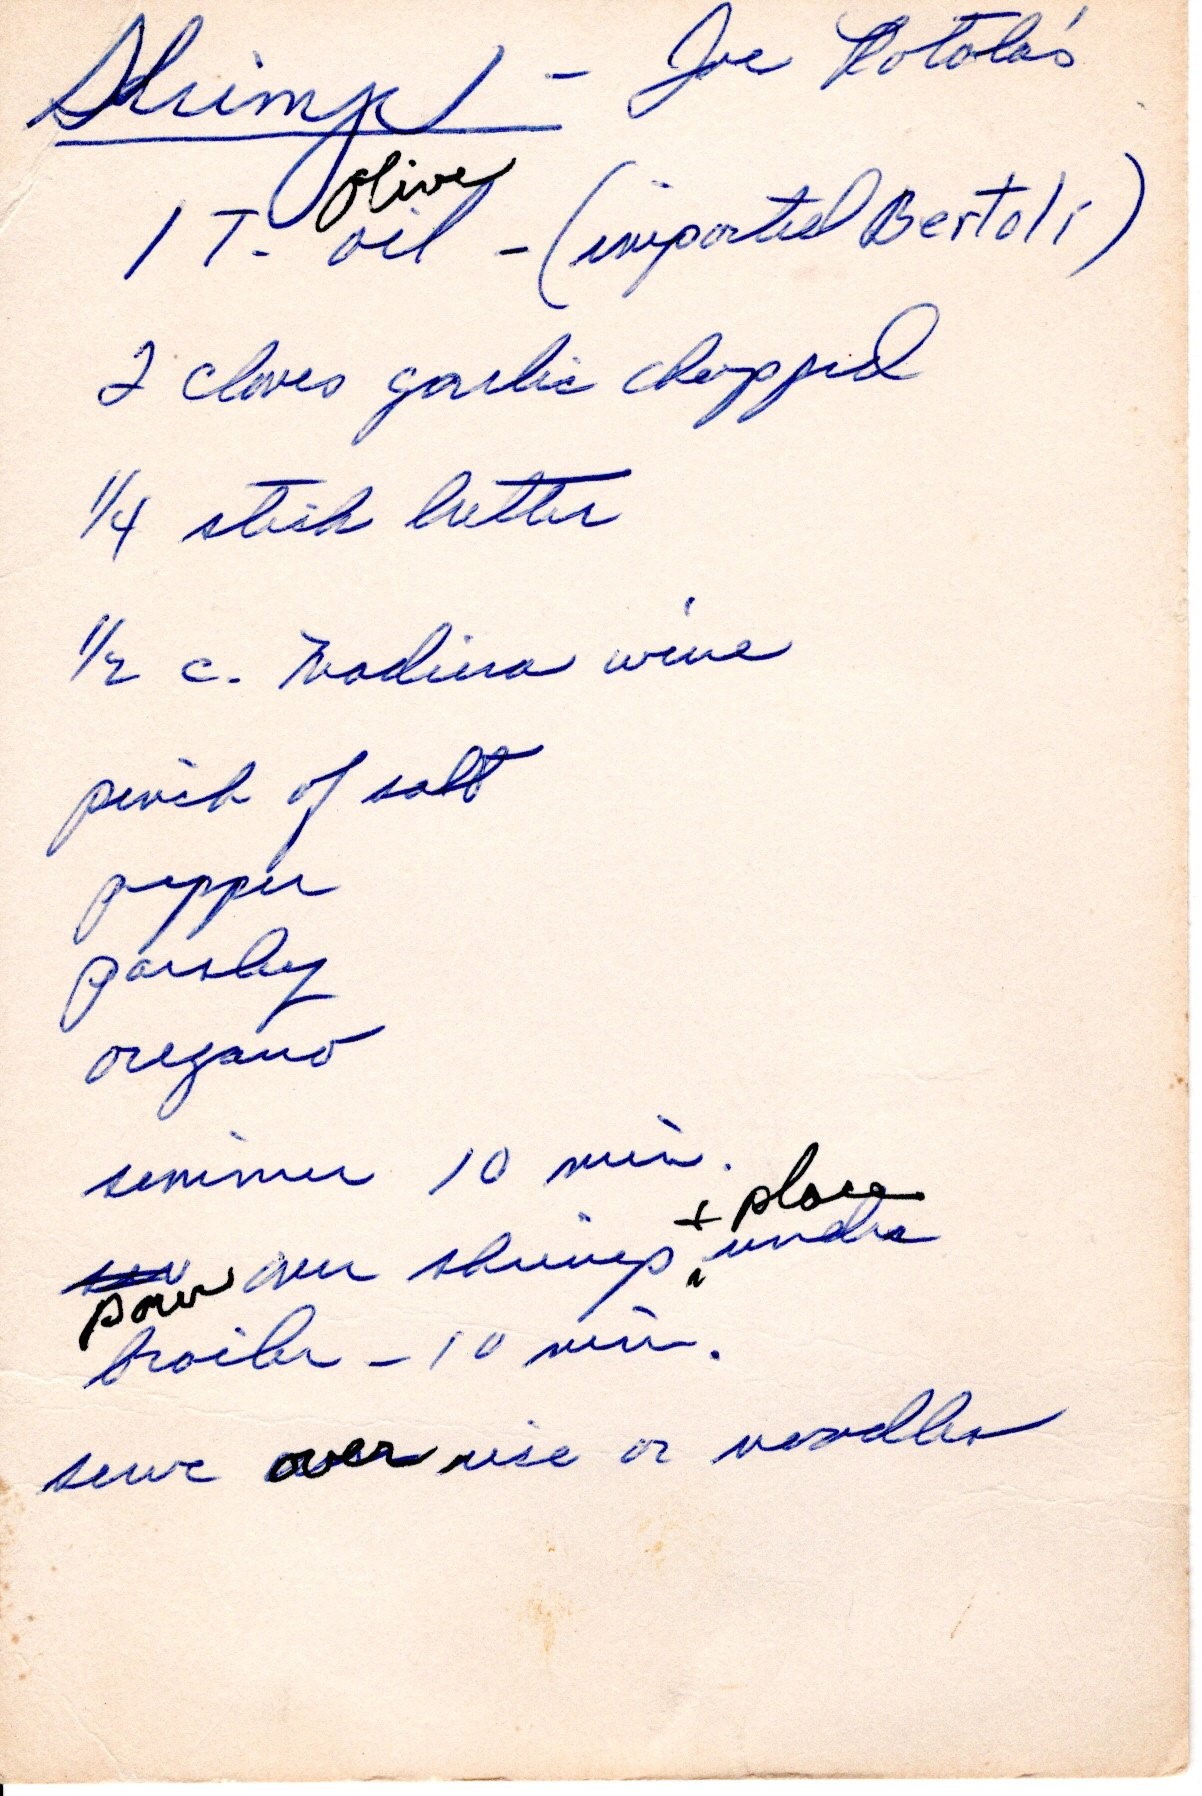 Shrimp - Joe Rotola's
olive
1 T. oil - (imported Bertoli)
2 cloves garlic chopped
1/4 stick butter
1/2 c. Madiera wine
pinch of salt
pepper
parsley
oregano
simmer 10 min.
+ place
pour over shrimp under
broiler - 10 min.
serve over rice or noodles